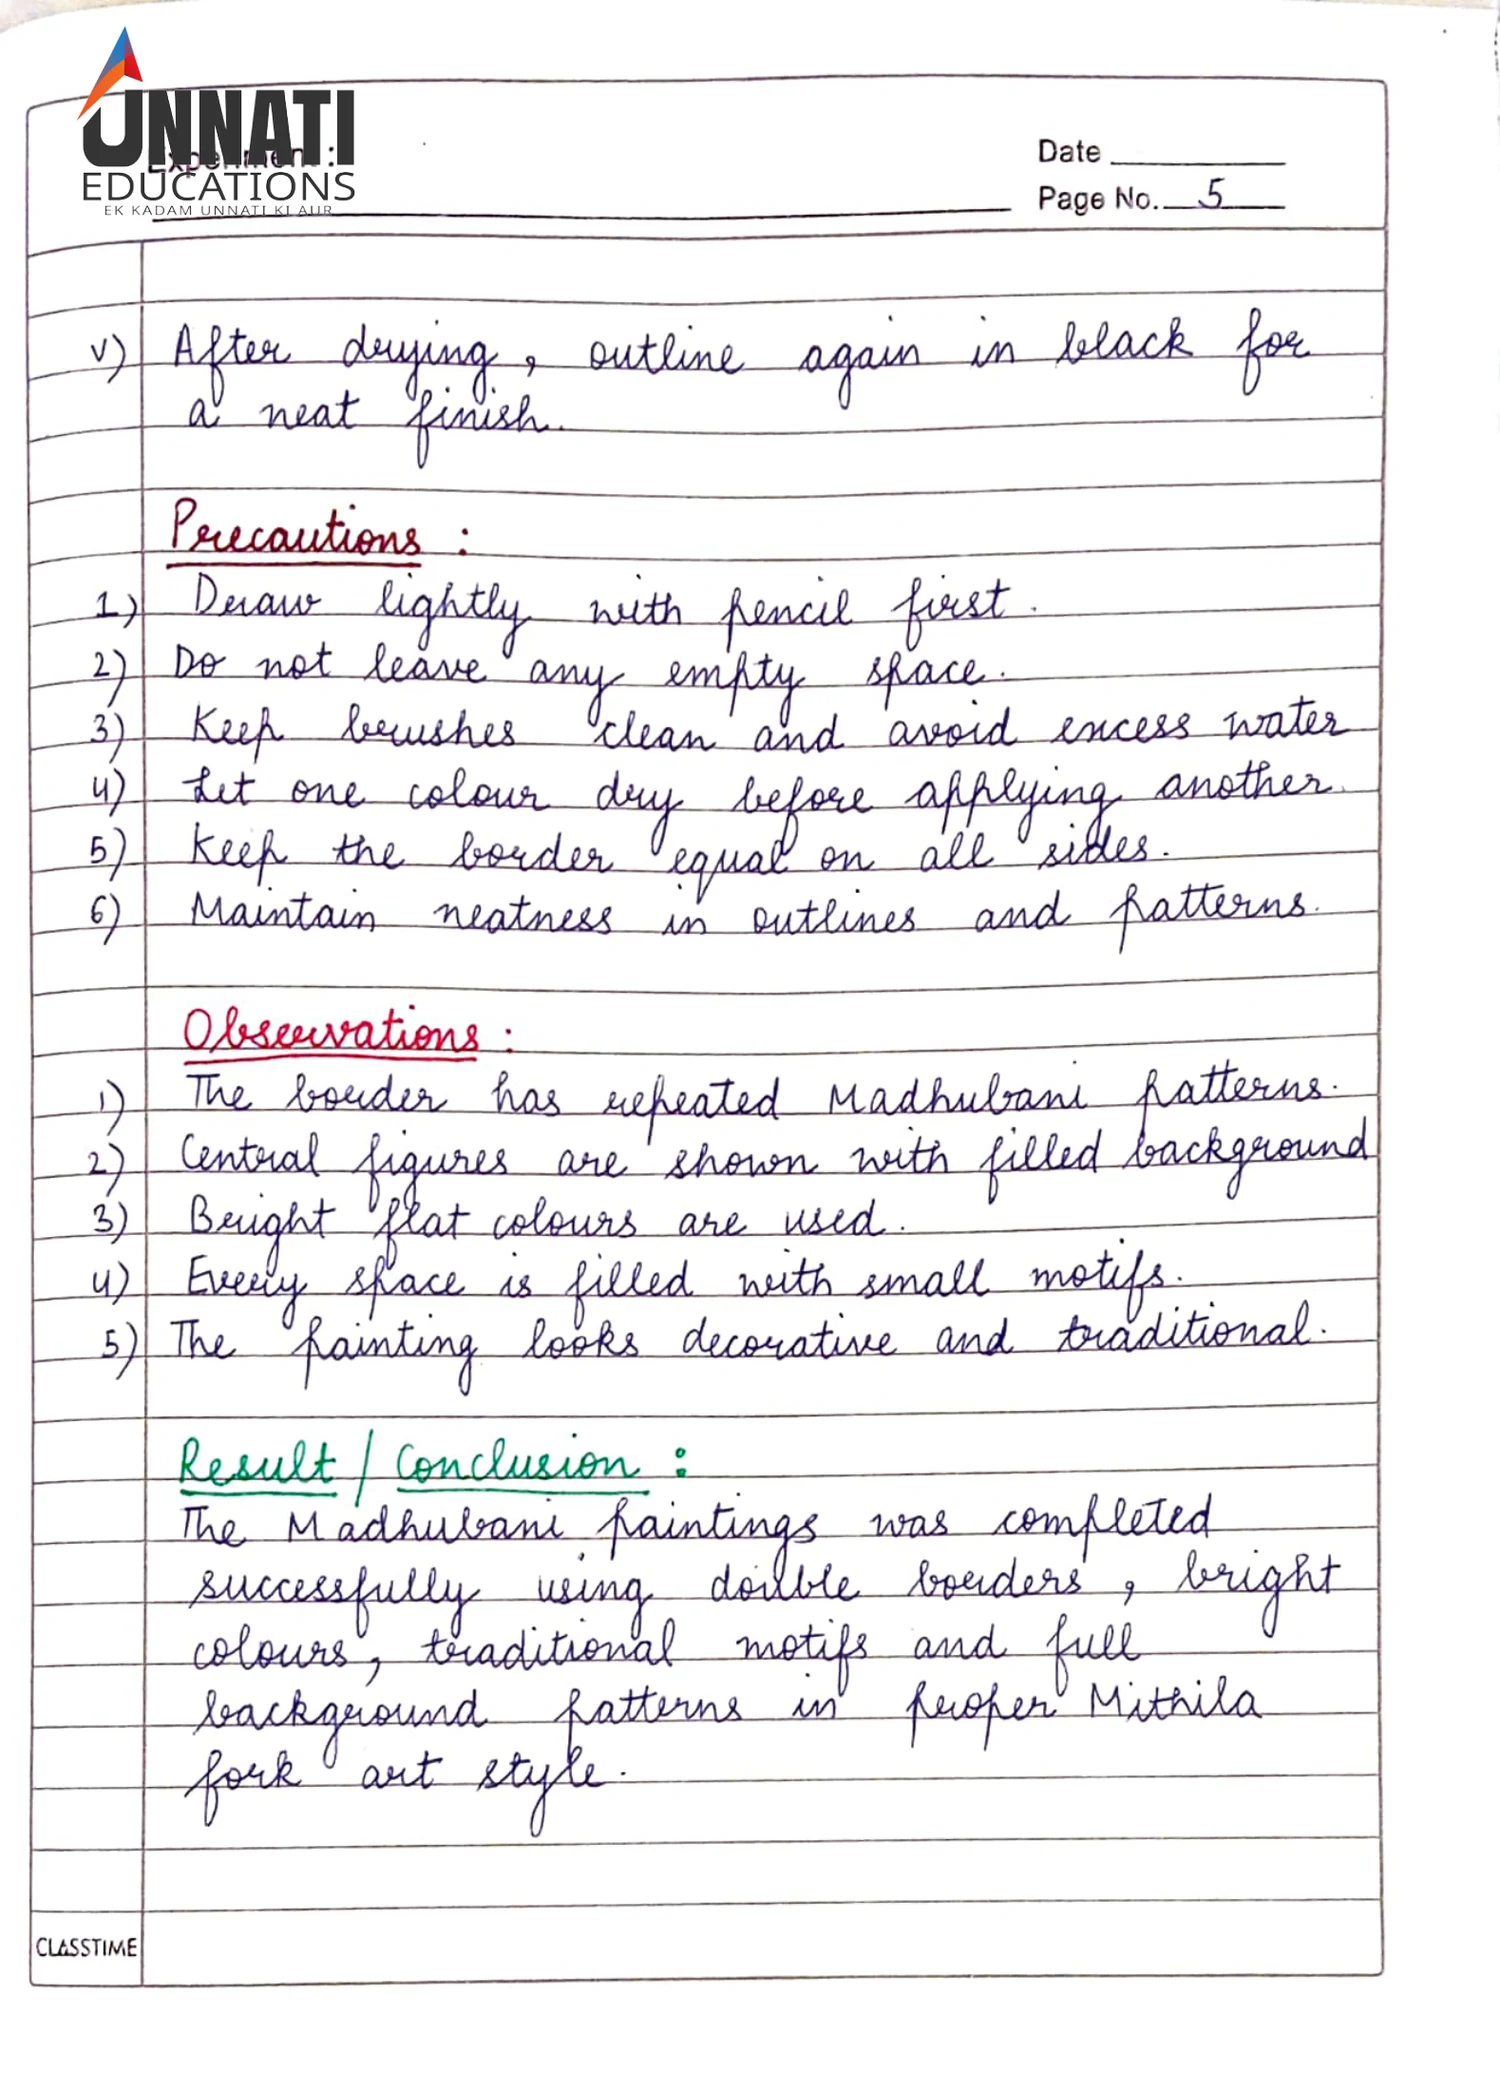 UNNATI
EDUCATIONS
EK KADAM UNNATI KI AUR
Experiment :
Date
Page No. 5
v) After drying, outline again in black for
a neat finish.
Precautions :
1) Draw lightly with pencil first.
2) Do not leave any empty space.
3) Keep brushes clean and avoid excess water
4) Let one colour dry before applying another.
5) Keep the border equal on all sides.
6) Maintain neatness in outlines and patterns.
Observations :
1) The border has repeated Madhubani patterns.
2) Central figures are shown with filled background
3) Bright flat colours are used.
4) Every space is filled with small motifs.
5) The painting looks decorative and traditional.
Result / Conclusion :
The Madhubani paintings was completed
successfully using double borders, bright
colours, traditional motifs and full
background patterns in proper Mithila
fork art style.
CLASSTIME